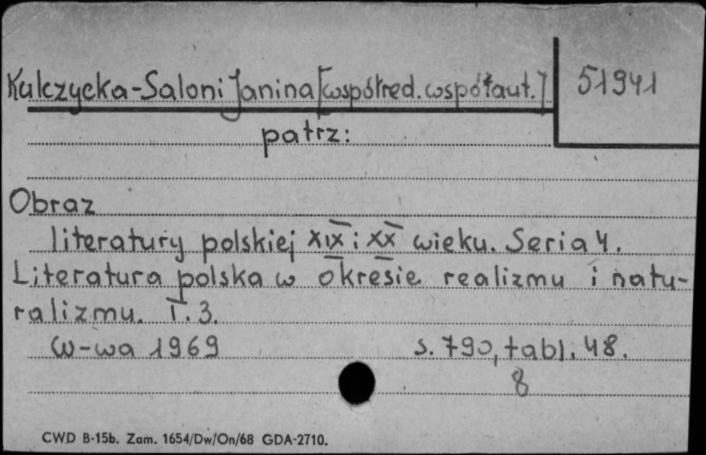 Kulczycka-Saloni Janina [współred. współaut.] 51941
patrz:
Obraz
literatury polskiej XIX i XX wieku. Seria 4.
Literatura polska w okresie realizmu i natu-
ralizmu. T. 3.
W-wa 1969 s. 790, tabl. 48.
8
CWD B-15b. Zam. 1654/Dw/On/68 GDA-2710.